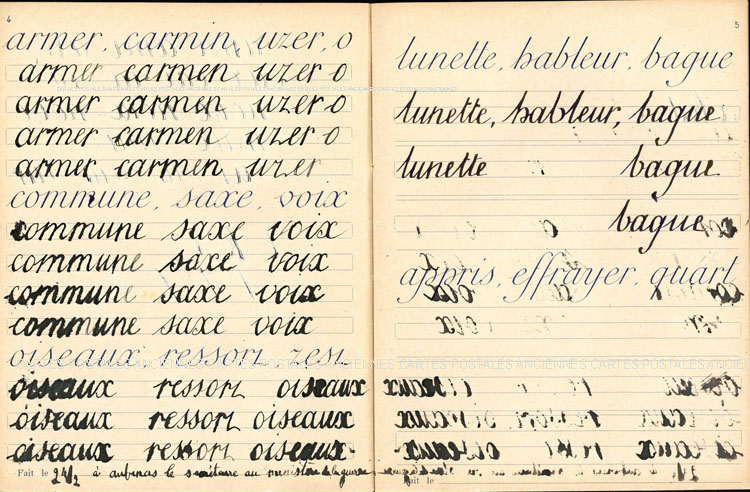 4
armer, carmin, uzer, o
armer carmen uzer o
armer carmen uzer o
armer carmen uzer o
armer carmen uzer
commune, saxe, voix
commune saxe voix
commune saxe voix
commune saxe voix
commune saxe voix
oiseaux ressort zest
oiseaux ressort oiseaux
oiseaux ressort oiseaux
oiseaux ressort oiseaux
Fait le 24/2 à aubenas le secrétaire au ministère de la guerre
5
lunette, hableur, bague
lunette, hableur, bague
lunette bague
bague
appris, effrayer, quart
Fait le
CARTES POSTALES ANCIENNES CARTES POSTALES ANCIENNES CARTES POSTALES ANCIENNES